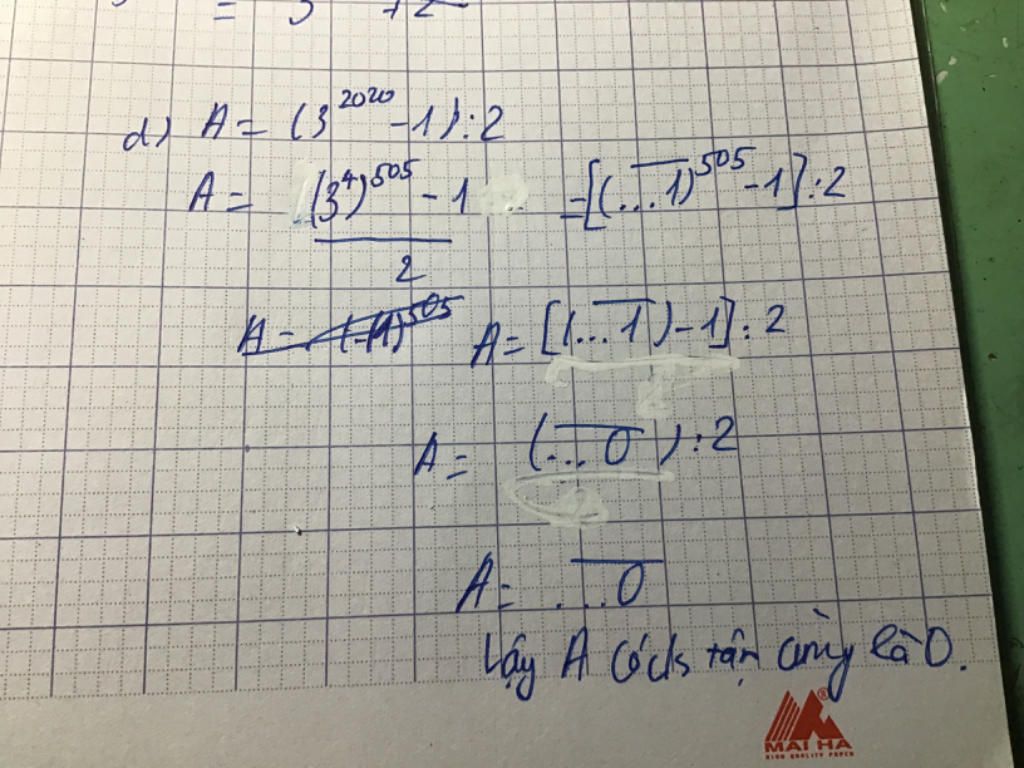 d) A = (3^2020 - 1) : 2
A = (3^4)^505 - 1 = [(...1)^505 - 1] : 2
2
A = [(...1) - 1] : 2
A = (...0) : 2
A = ...0
Vậy A có cs tận cùng là 0.
MAI HA
®
HIGH QUALITY PAPER